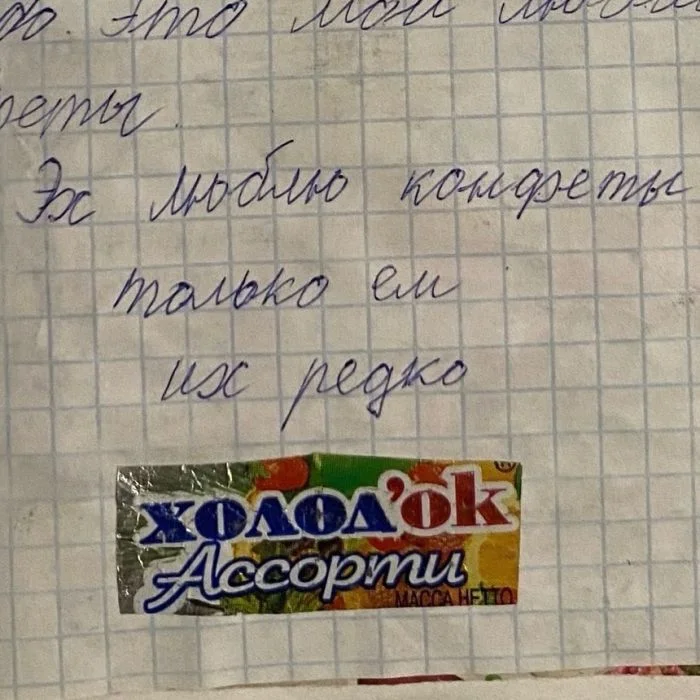 Это мои
Эх люблю конфеты
только ем
их редко
холод'ok
®
Ассорти
МАССА НЕТТО